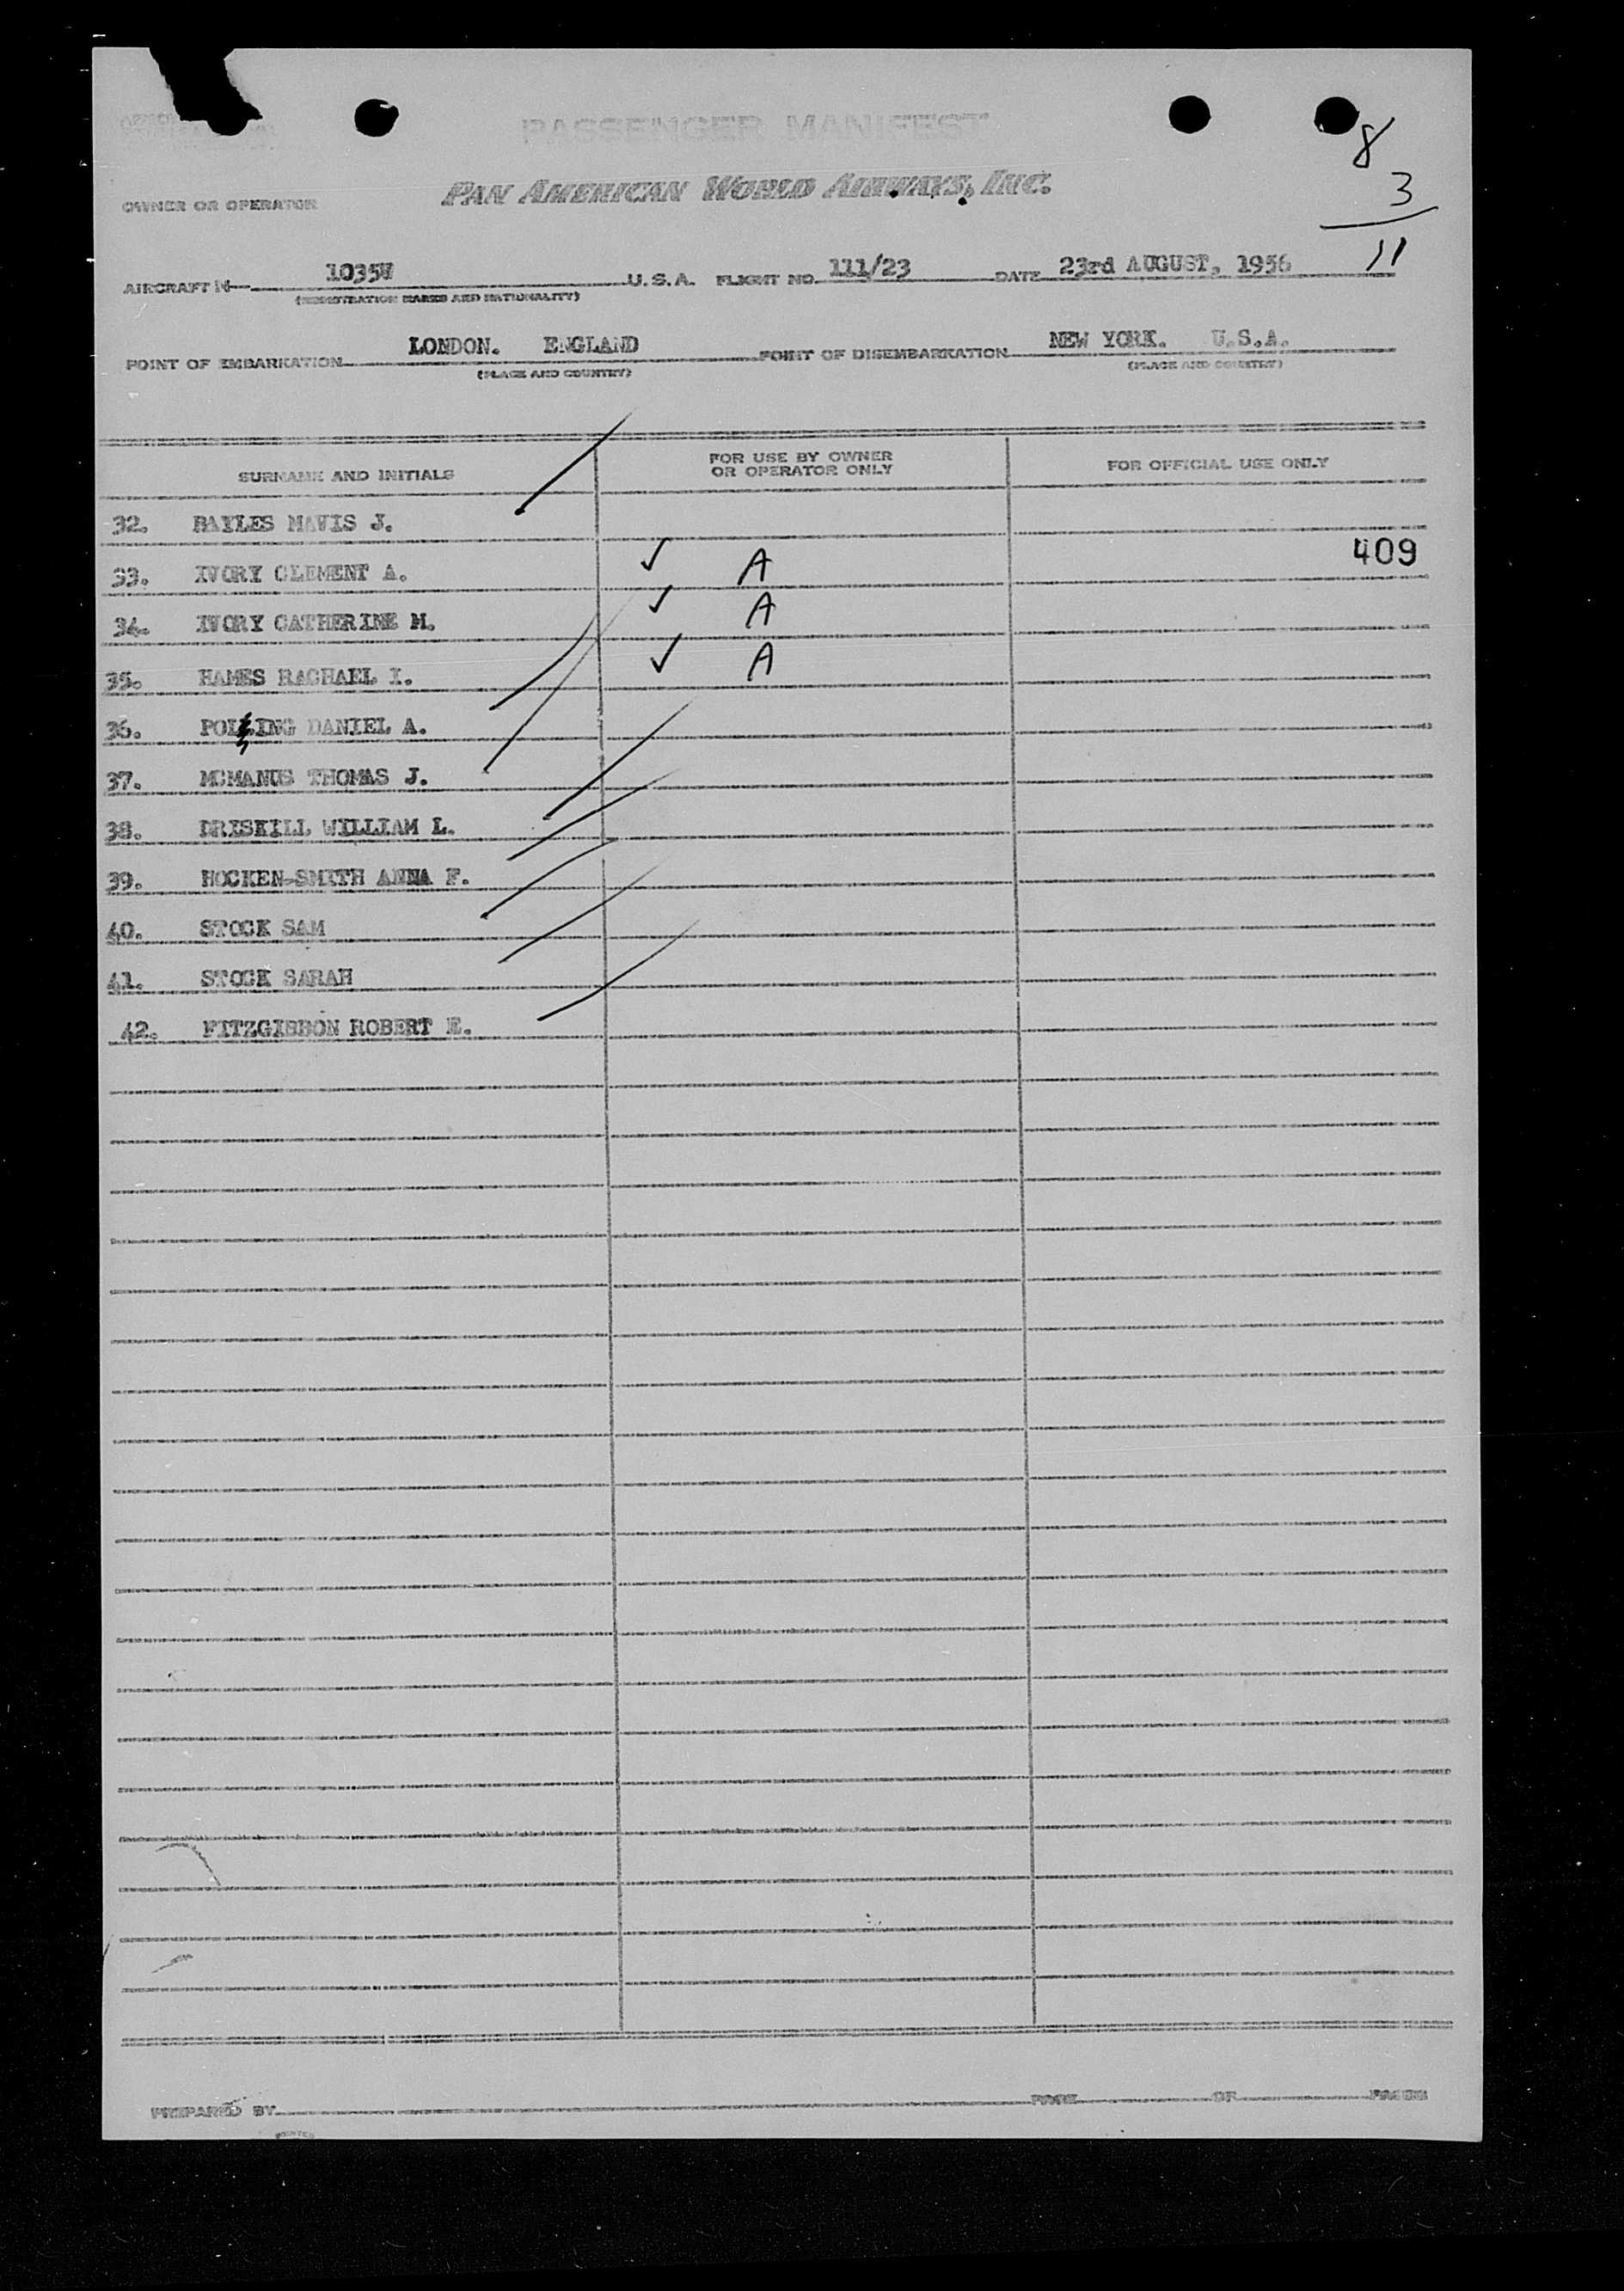 PASSENGER MANIFEST
8
3
11
OWNER OR OPERATOR PAN AMERICAN WORLD AIRWAYS, INC.
AIRCRAFT N 1035V U.S.A. FLIGHT NO. 111/23 DATE 23rd AUGUST, 1956
(REGISTRATION MARKS AND NATIONALITY)
POINT OF EMBARKATION LONDON. ENGLAND POINT OF DISEMBARKATION NEW YORK. U.S.A.
(PLACE AND COUNTRY) (PLACE AND COUNTRY)
SURNAME AND INITIALS
FOR USE BY OWNER
OR OPERATOR ONLY
FOR OFFICIAL USE ONLY
32. BAYLES MAVIS J.
33. IVORY CLEMENT A. ✓ A 409
34. IVORY CATHERINE M. ✓ A
35. HAMES RACHAEL I. ✓ A
36. POLING DANIEL A.
37. MCMANUS THOMAS J.
38. DRISKILL WILLIAM L.
39. HOCKEN-SMITH ANNA F.
40. STOCK SAM
41. STOCK SARAH
42. FITZGIBBON ROBERT E.
PREPARED BY PAGE OF PAGES
PRINTED